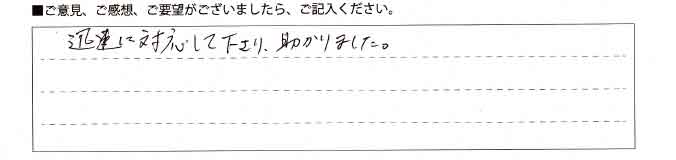 ■ご意見、ご感想、ご要望がございましたら、ご記入ください。
迅速に対応して下さり、助かりました。